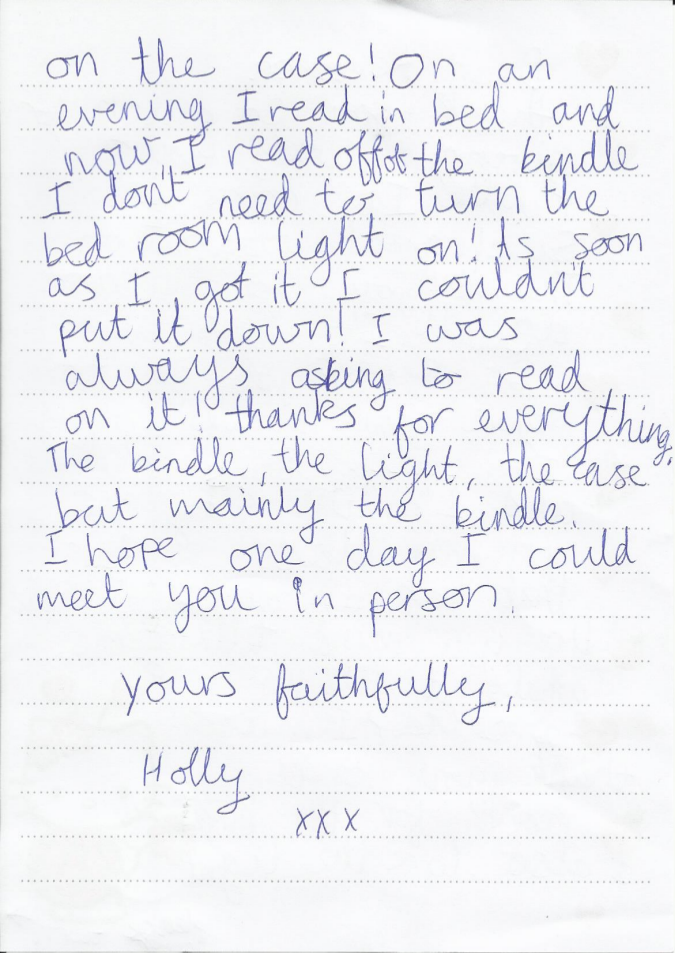 on the case! On an
evening I read in bed and
now, I read off of the kindle
I don't need to turn the
bed room light on! As soon
as I got it I couldn't
put it down! I was
always asking to read
on it! thanks for everything,
The kindle, the light, the case
but mainly the kindle.
I hope one day I could
meet you in person.
yours faithfully,
Holly
xxx